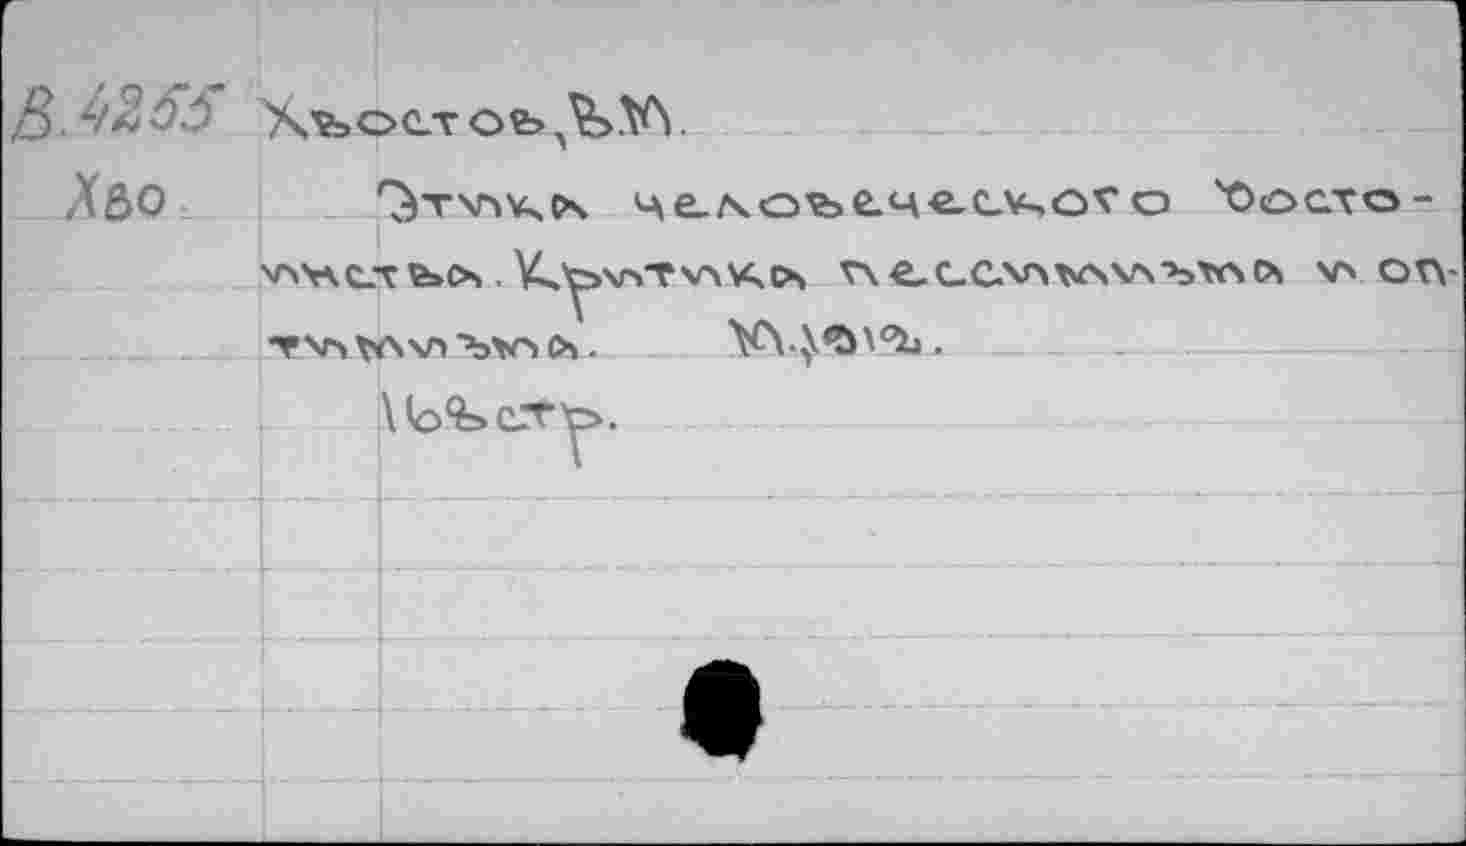 В.4255 Хвостов, В.М.
Хво Этика человеческого досто-
инства. Критика пессимизма и оп-
тимизма. М.,1912.
стр.